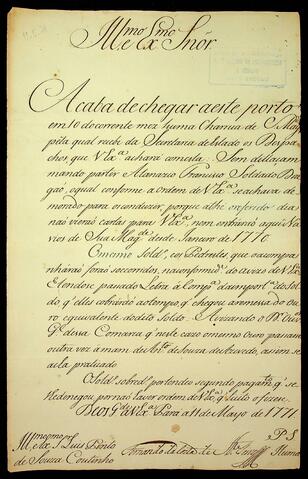 Ill.mo e Ex.mo Snõr
Acaba de chegar a este porto
em 10 do corrente mez huma Charrua de S. Mag.e
pela qual recebi da Secretaria de Estado os Despa-
chos, que V. Ex.a achará com esta. Sem dilaçam
mando partir Atanazio Francisco Soldado Dra-
gaõ, o qual conforme a ordem de V. Ex.a se achava de-
morado para os conduzir, porque athe o referido dia
naõ vieraõ cartas para V. Ex.a nem entraraõ aqui Na-
vios de Sua Mag.de desde Janeiro de 1770.
O mesmo Sold.o, e os Pedestres que o acompa-
nharaõ foraõ socorridos, na conformid.e do avizo de V. Ex.a
passado Letra á Comp.a da importancia do Sol-
do, q elles cobriraõ ao tempo, q chegou a remessa do ou-
ro equivalente do dito Soldo.
dessa Comarca q neste cazo o mesmo ouro passam
outra vez á mam de Ant.o de Souza de Azevedo, assim se
acha praticado.
O Sold.o sobred.o pertendeo segundo pagam.to q se
lhe denegou por naõ haver ordem de V. Ex.a q
Deos g.de a V. Ex.a Pará a 11 de Mayo de 1771
Ill.mo e Ex.mo S.r Luis Pinto
de Souza Coutinho
Fernando da Costa de
P. S.
Huma